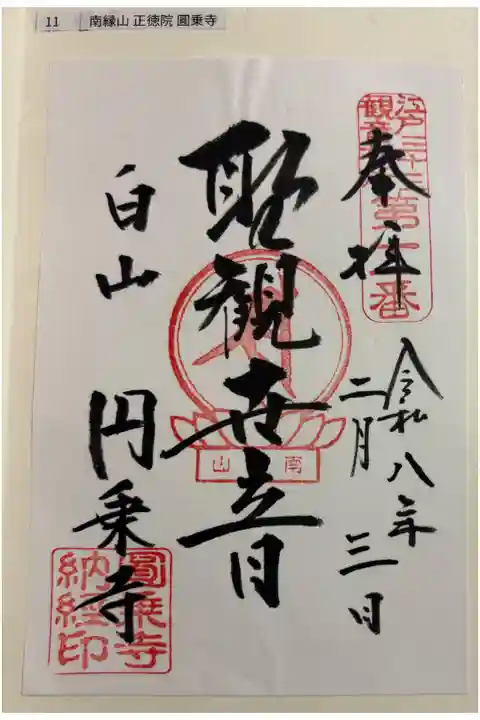 11 南縁山 正徳院 圓乗寺
江戸三十三
観音
第十一番
奉拝
令和八年
二月三日
聖観世音
南山
白山 円乗寺
圓乗寺
納経印